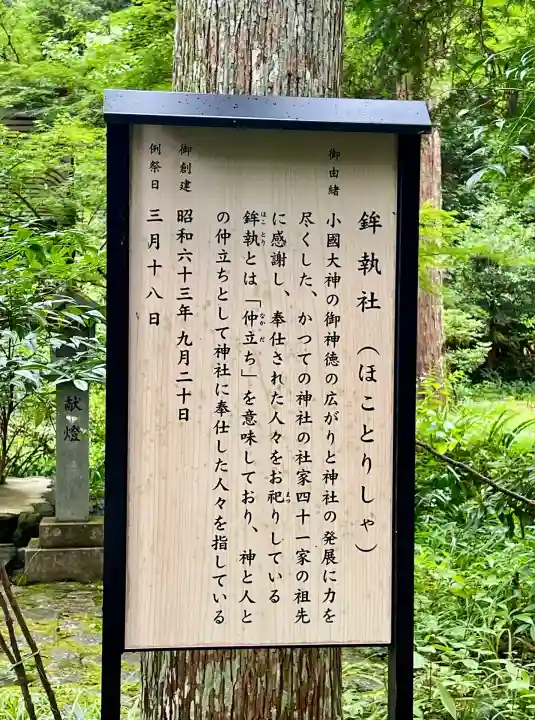 鉾執社（ほことりしゃ）
御由緒
小國大神の御神徳の広がりと神社の発展に力を
尽くした、かつての神社の社家四十一家の祖先
に感謝し、奉仕された人々をお祀りしている
まつ
鉾執とは「仲立ち」を意味しており、神と人と
ほことり
なかだ
の仲立ちとして神社に奉仕した人々を指している
御創建 昭和六十三年 九月二十日
例祭日 三月十八日
献燈